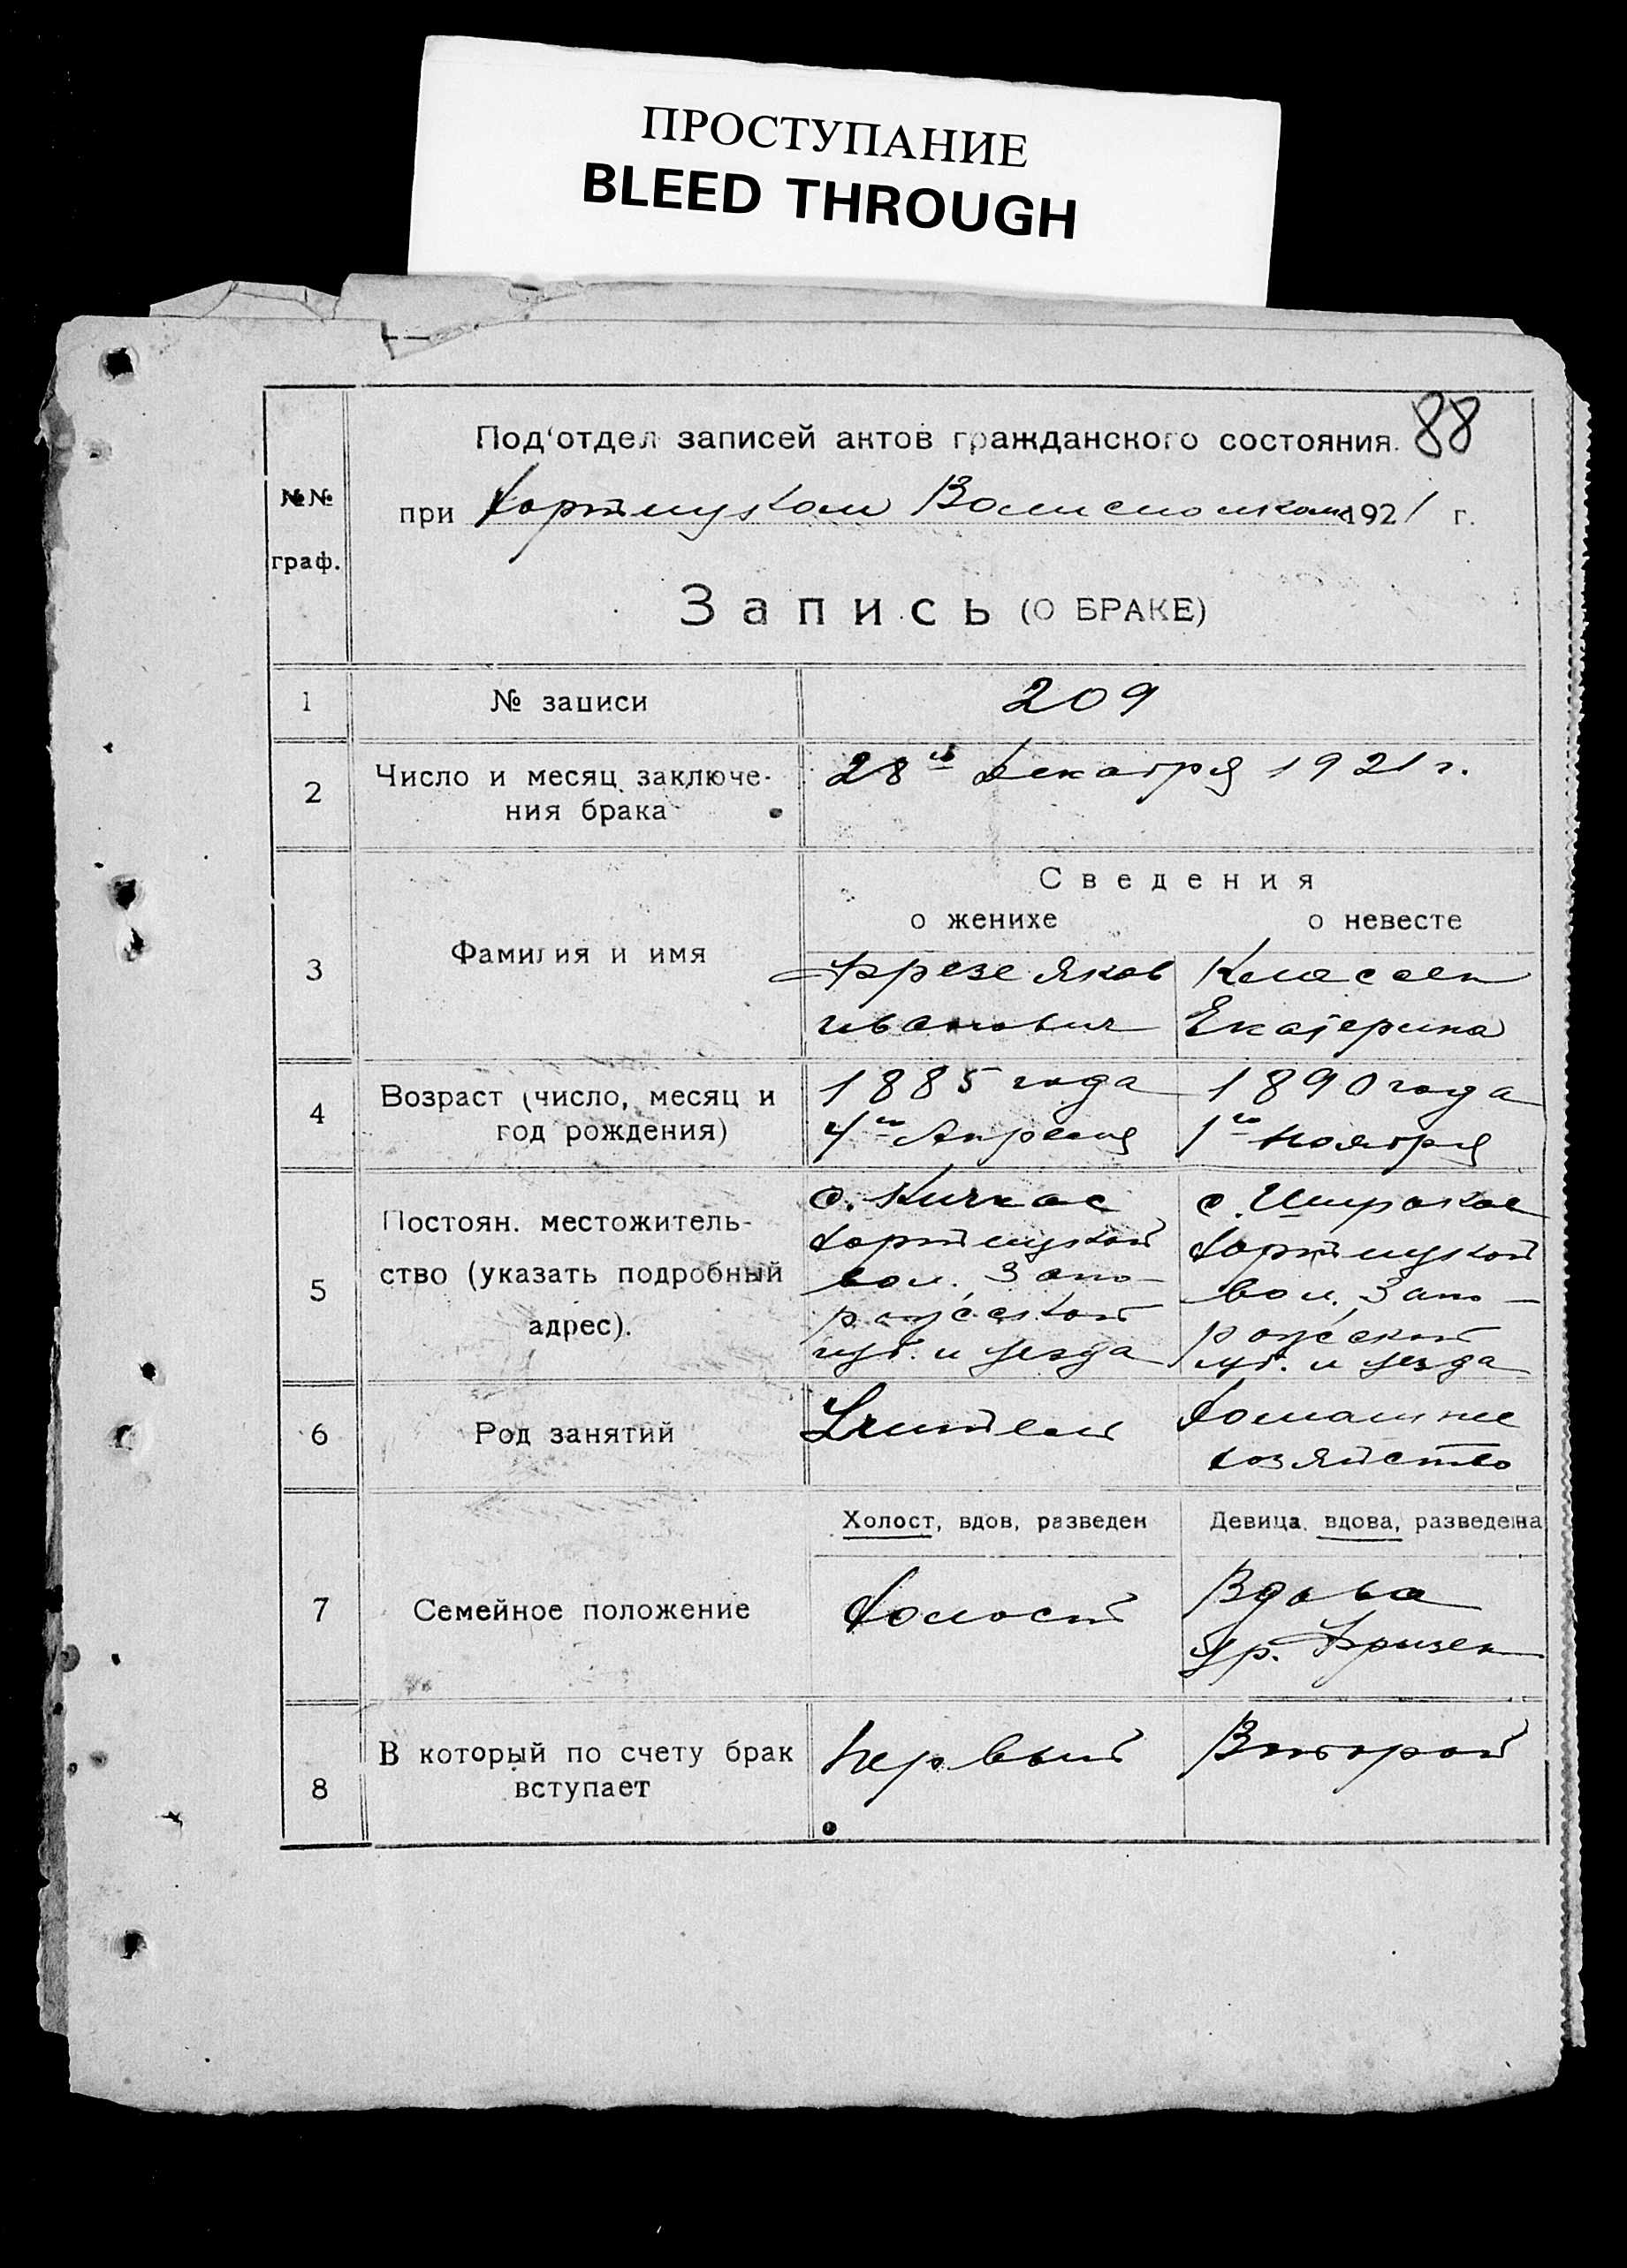 ПРОСТУПАНИЕ
BLEED THROUGH
88
Под'отдел записей актов гражданского состояния.
№№
граф.
при Хортицком Волисполкоме 1921 г.
Запись (О БРАКЕ)
1 № записи 209
2 Число и месяц заключе-
ния брака
28го Декабря 1921 г.
Сведения
о женихе о невесте
3 Фамилия и имя
Фрезе Яков Классен
Иванович Екатерина
4 Возраст (число, месяц и
год рождения)
1885 года 1890 года
4го Апреля 1го Ноября
5 Постоян. местожитель-
ство (указать подробный
адрес).
с. Кичкас с. Широкое
Хортицкой Хортицкой
вол. Запо- вол. Запо-
рожской рожской
губ. и уезда губ. и уезда
6 Род занятий
Учитель Домашнее
хозяйство
Холост, вдов, разведен Девица, вдова, разведена
7 Семейное положение
Холост Вдова
ур. Фризен
8 В который по счету брак
вступает
Первый Второй